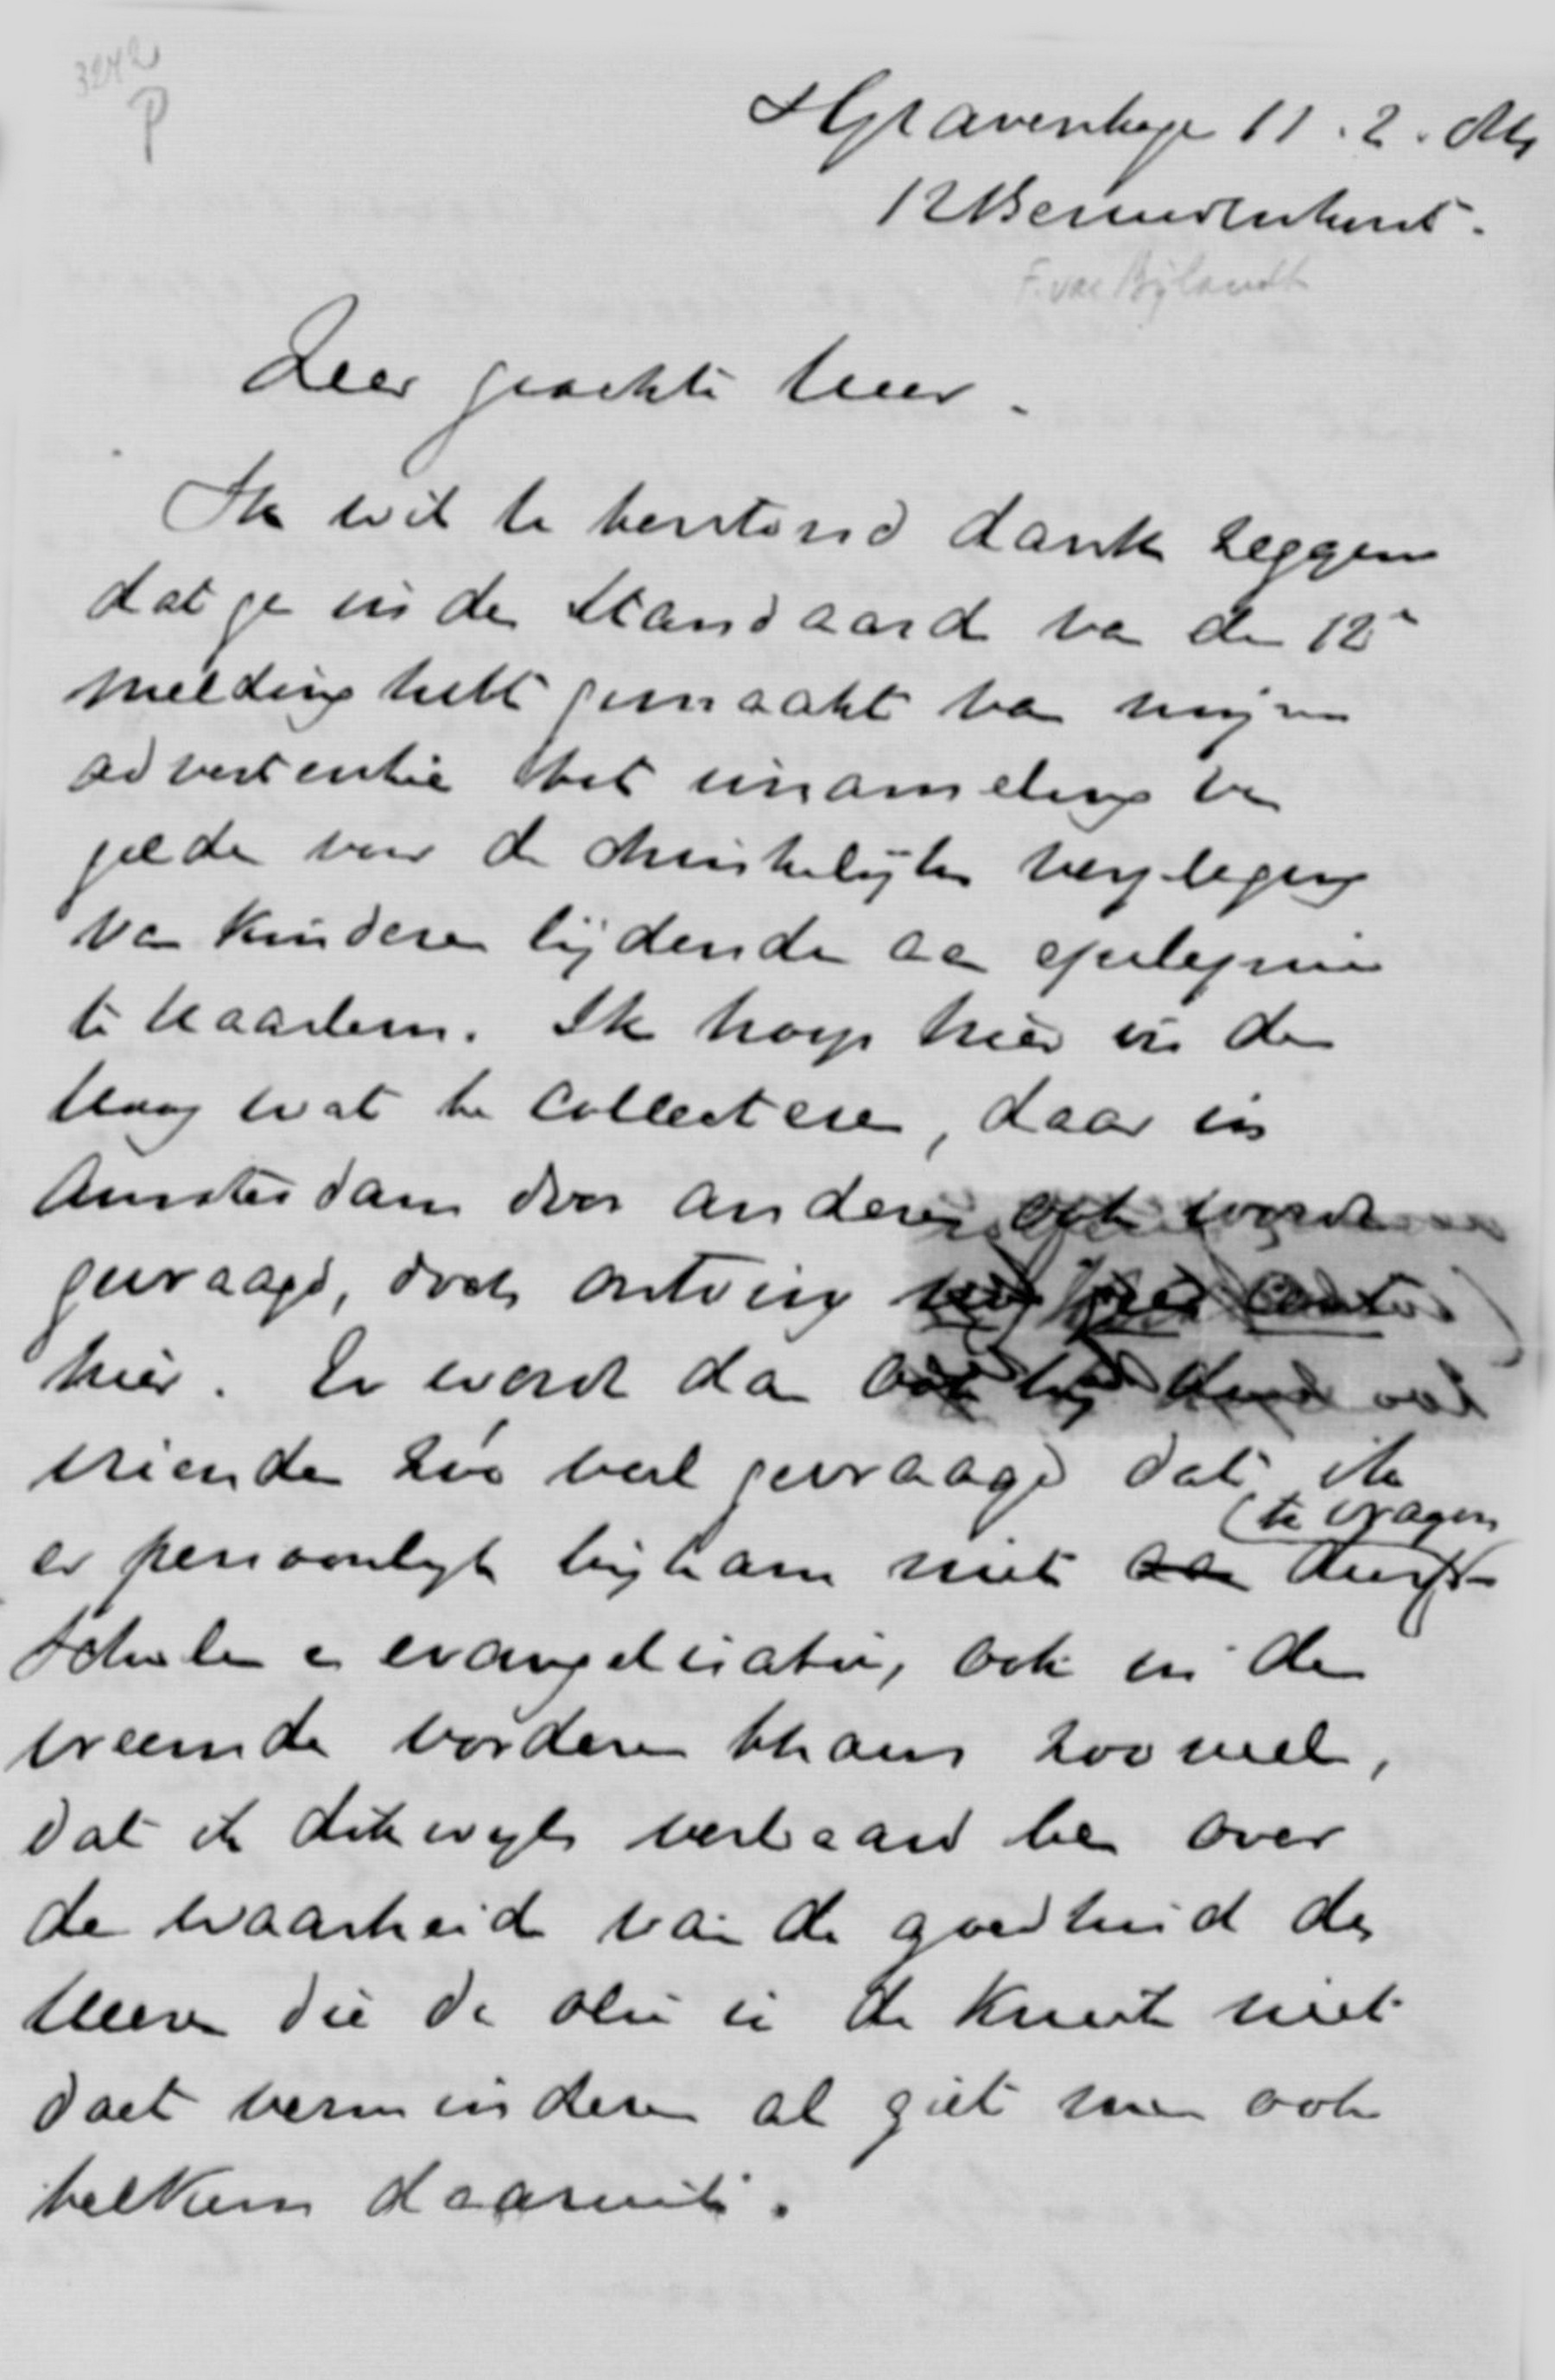 3242
P
sGravenhage 11.2.
12 Bezuidenhout.
F. van Bylandt
Zeer geachte Heer.
Ik wil U toch dank zeggen
dat ge in de Standaard van de 12e
melding hebt gemaakt van mijne
advertentie tot inzameling van
gelden voor de Christelijke verpleging
van kinderen lijdende aan epilepsie
te Haarlem. Ik hoop hier in den
Haag wat te collecteren, daar in
Amsterdam door anderen ook wordt
gevraagd, doch ontving
hier. Er wordt dan ook bij
vrienden zóó veel gevraagd dat ik
er persoonlijk bijkans niet durf
(te vragen
Scholen en evangelisatie, ook in den
vreemde vorderen thans zooveel,
dat ik dikwijls verbaasd ben over
de waarheid van de goedheid des
Heeren die de olie in de kruik niet
doet verminderen al giet men ook
telkens daaruit.